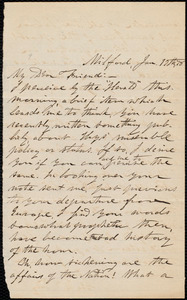 Milford, Jan. 10th
My Dear Friend:—
I perceive by the "Herald" this
morning a brief item which
leads me to think that you have
recently written something pub-
licly about Hayti miserable
policy or status. If so, I desire
you if you can favor me the
same. In looking over your
note sent me just previous
to your departure from
Europe, I find your words
somewhat prophetic then,
have become sad history
of the hour.
Oh, how sickening are the
affairs of the Nation! What a